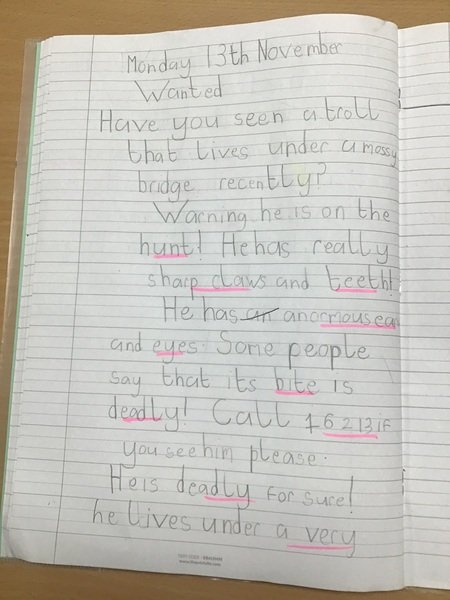 Monday 13th November
Wanted
Have you seen a troll
that lives under a mossy
bridge recently?
Warning he is on the
hunt! He has really
sharp claws and teeth!
He has an anormous ear
and eyes. Some people
say that its bite is
deadly! Call 16213 if
you see him please.
He is deadly for sure!
he lives under a very